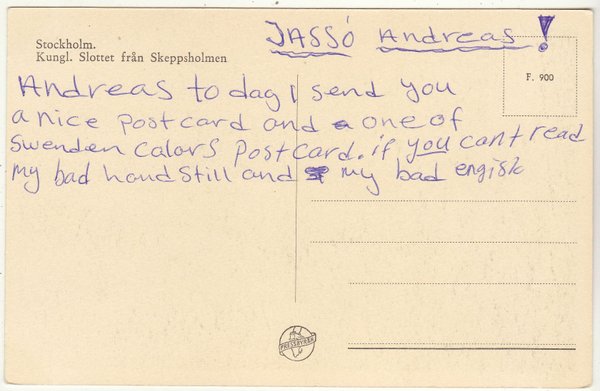 JASSÓ Andreas!
Stockholm.
Kungl. Slottet från Skeppsholmen
F. 900
Andreas to dag I send you
a nice postcard and a one of
Swenden calors postcard. if you cant read
my bad handstill and my bad engisk
PRESSBYRÅN